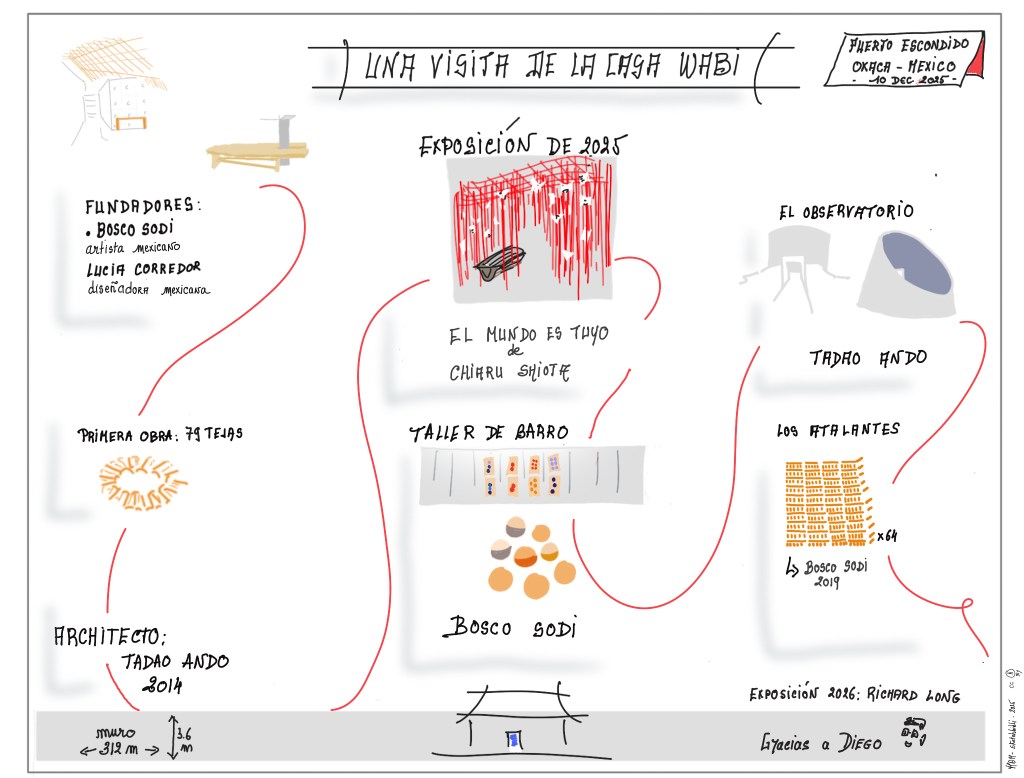 UNA VISITA DE LA CASA WABI
PUERTO ESCONDIDO
OXACA - MEXICO
- 10 DEC. 2025 -
FUNDADORES:
• BOSCO SODI
artista mexicano
LUCIA CORREDOR
diseñadora mexicana
PRIMERA OBRA: 79 TEJAS
ARCHITECTO:
TADAO ANDO
2014
muro
312 m
3.6
m
EXPOSICIÓN DE 2025
EL MUNDO ES TUYO
de
CHIARU SHIOTA
TALLER DE BARRO
BOSCO SODI
EL OBSERVATORIO
TADAO ANDO
LOS ATALANTES
x64
BOSCO SODI
2019
EXPOSICIÓN 2026: RICHARD LONG
Gracias a DIEGO